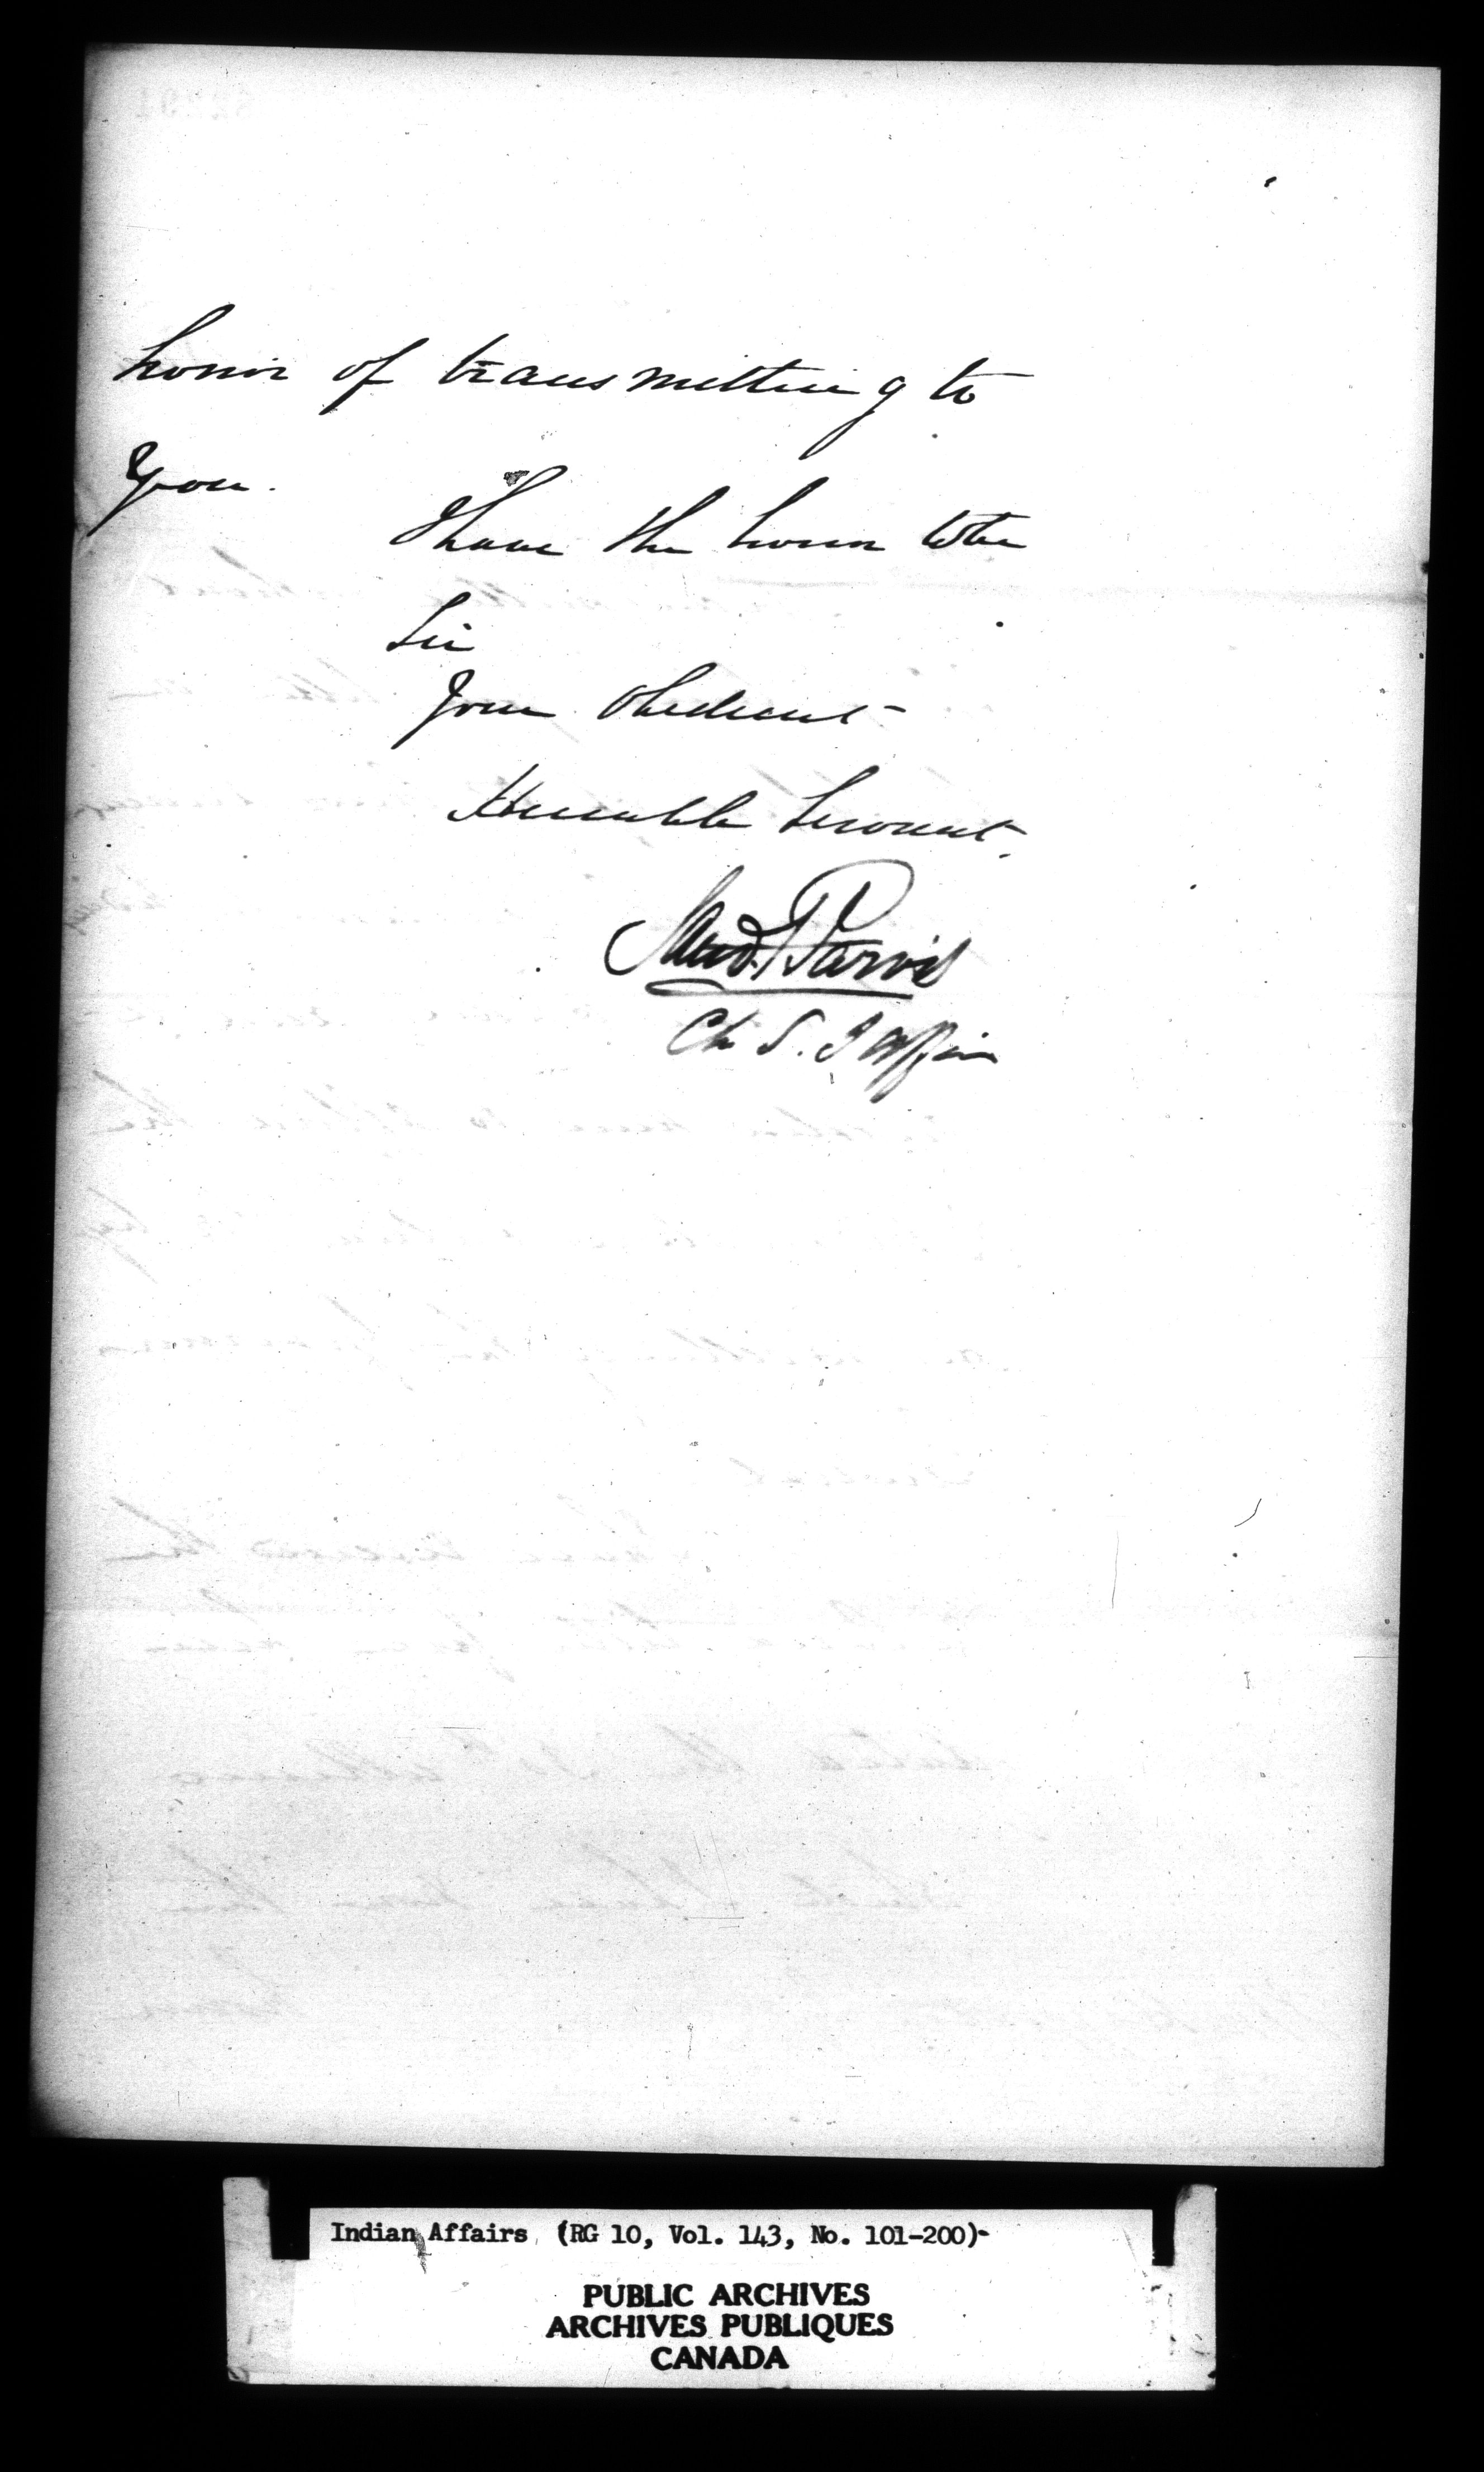 honor of transmitting to
you.
I have the honor to be
Sir
Your Obedient
Humble Servant.
Saml P Jarvis
Ch S. I Affair
Indian Affairs (RG 10, Vol. 143, No. 101-200)-
PUBLIC ARCHIVES
ARCHIVES PUBLIQUES
CANADA